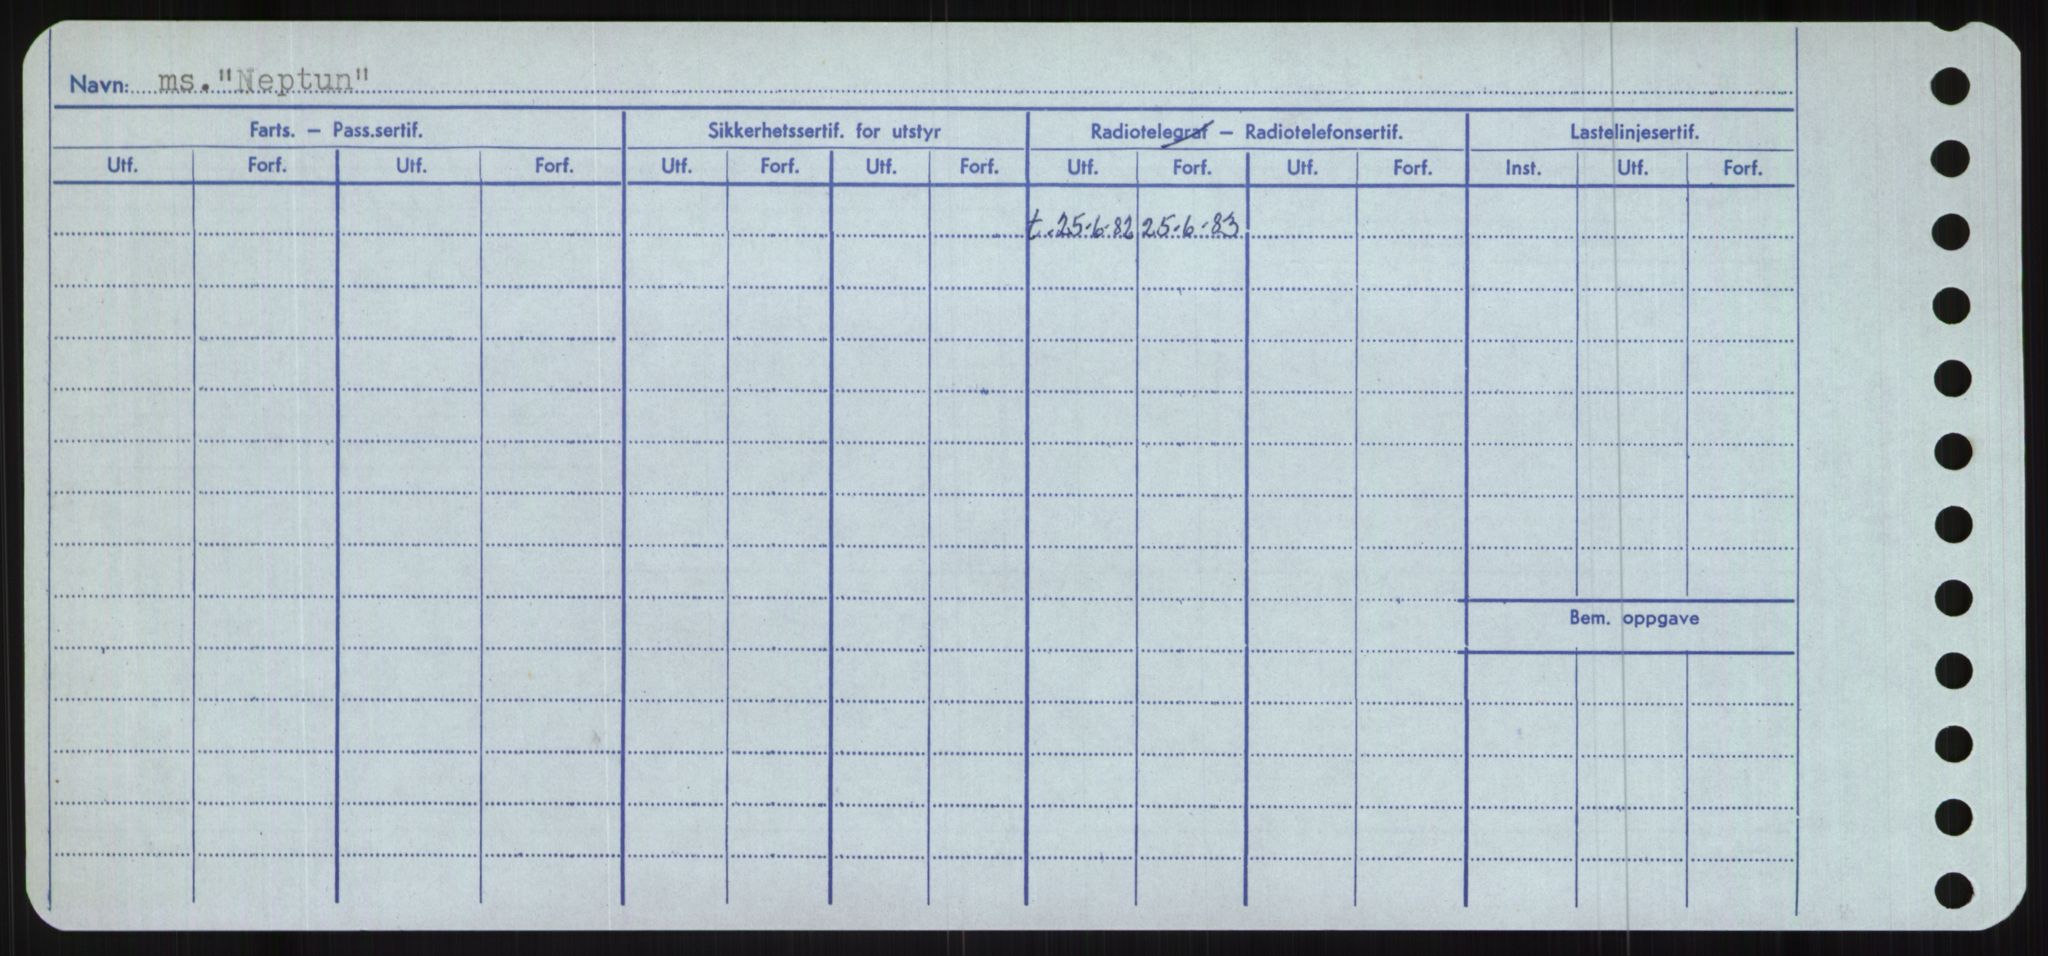 Navn: ms."Neptun"
Farts. – Pass.sertif. Sikkerhetssertif. for utstyr Radiotelegraf – Radiotelefonsertif. Lastelinjesertif.
Utf. Forf. Utf. Forf. Utf. Forf. Utf. Forf. Utf. Forf. Utf. Forf. Inst. Utf. Forf.
t.25-6-82 25-6-83
Bem. oppgave